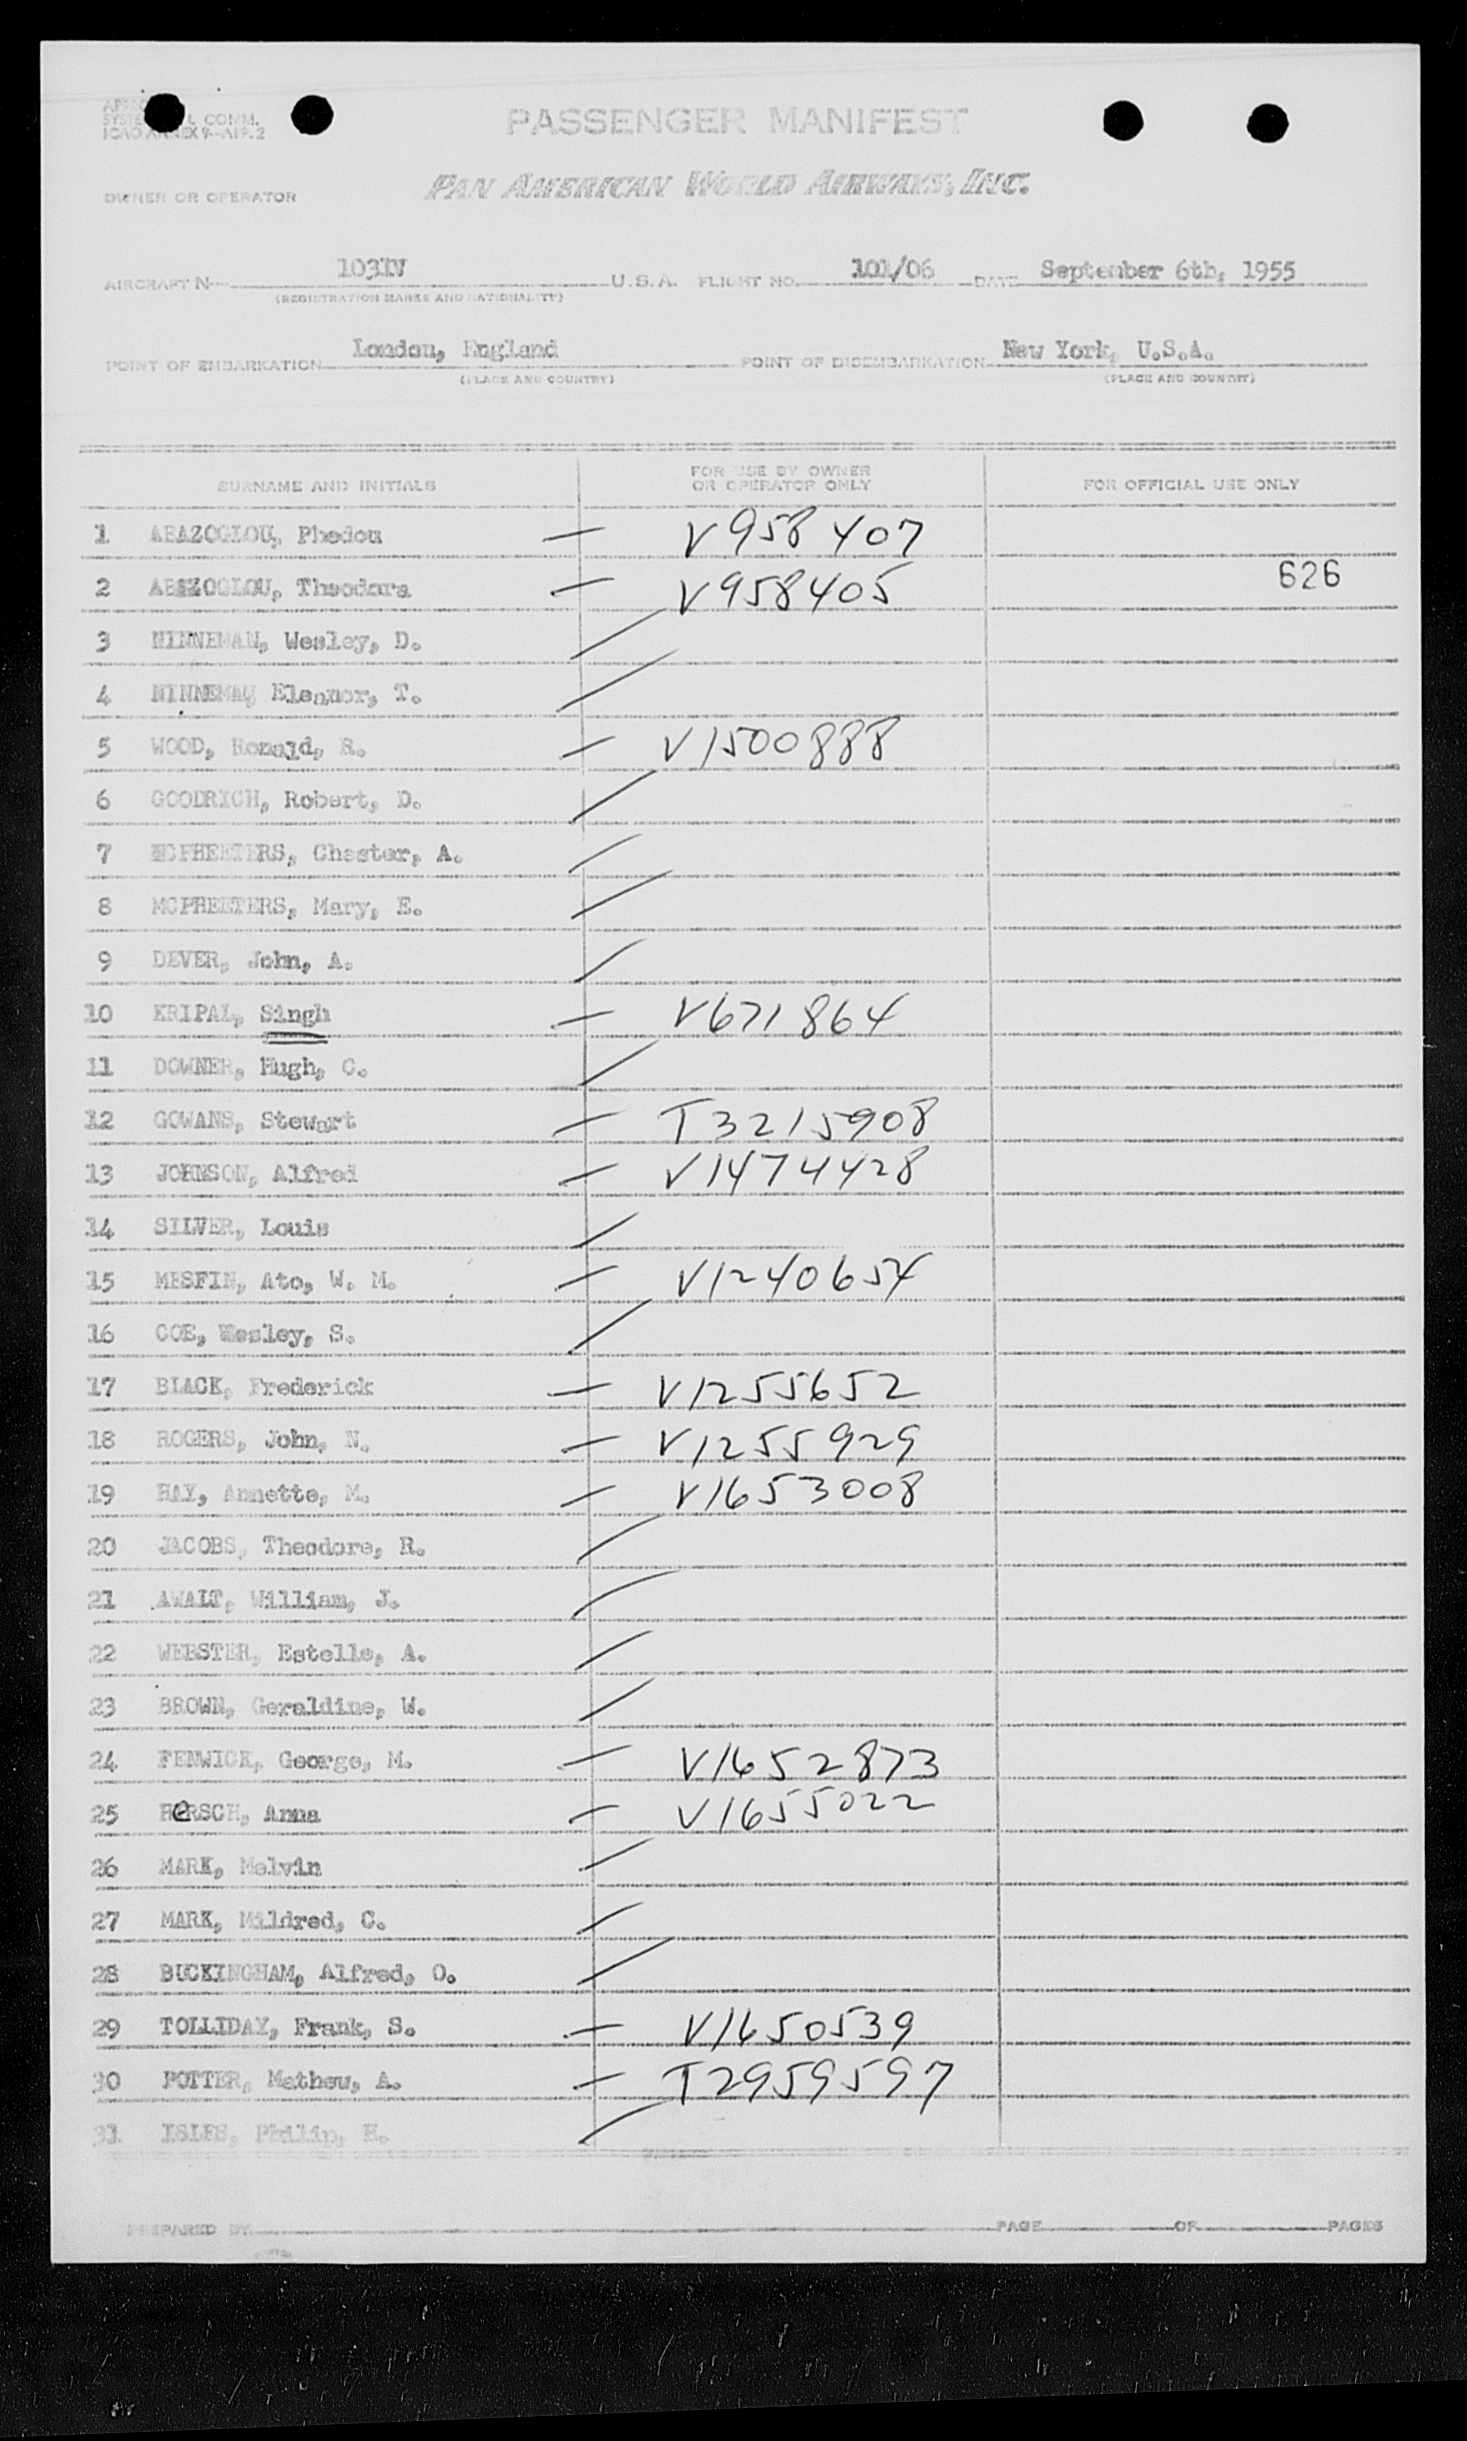 PASSENGER MANIFEST
COMM.
ICAO ANNEX 9-APP. 2
OWNER OR OPERATOR PAN AMERICAN WORLD AIRWAYS, INC.
AIRCRAFT N 1031V U.S.A. FLIGHT NO. 101/06 DATE September 6th, 1955
(REGISTRATION MARKS AND NATIONALITY)
POINT OF EMBARKATION London, England POINT OF DISEMBARKATION New York, U.S.A.
(PLACE AND COUNTRY) (PLACE AND COUNTRY)
SURNAME AND INITIALS FOR USE BY OWNER OR OPERATOR ONLY FOR OFFICIAL USE ONLY
1 ABAZOGLOU, Phedou — V958407
2 ABAZOGLOU, Theodora — V958405 626
3 NINNEMAN, Wesley, D. /
4 NINNEMAN Eleanor, T. /
5 WOOD, Ronald, R. — V1500888
6 GOODRICH, Robert, D. /
7 MCPHEETERS, Chester, A. /
8 MCPHEETERS, Mary, E. /
9 DEVER, John, A. /
10 KRIPAL, Singh — V671864
11 DOWNER, Hugh, C. /
12 GOWANS, Stewart — T3215908
13 JOHNSON, Alfred — V1474428
14 SILVER, Louis /
15 MESFIN, Ato, W. M. — V1240654
16 COE, Wesley, S. /
17 BLACK, Frederick — V1255652
18 ROGERS, John, N. — V1255929
19 HAY, Annette, M. — V1653008
20 JACOBS, Theodore, R. /
21 AWALT, William, J. /
22 WEBSTER, Estelle, A. /
23 BROWN, Geraldine, W. /
24 FENWICK, George, M. — V1652873
25 HeRSCH, Anna — V1655022
26 MARK, Melvin /
27 MARK, Mildred, C. /
28 BUCKINGHAM, Alfred, O. /
29 TOLLIDAY, Frank, S. — V1650539
30 POTTER, Mathew, A. — T2959597
31 ISLES, Philip, H. /
PREPARED BY PAGE OF PAGES